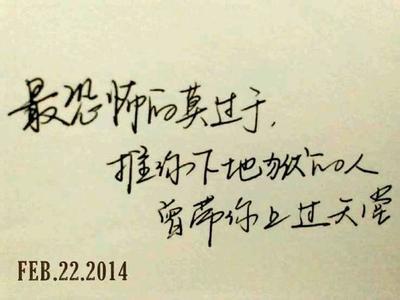 最恐怖的莫过于,
推你下地狱的人
曾带你上过天堂
FEB.22.2014